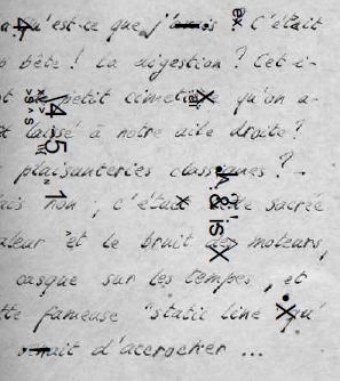 qu'est-ce que j' C'était
bête ! La digestion ? Cet-i-
petit cimetière qu'on a-
laissé à notre aile droite ?
plaisanteries classiques ? -
non ; c'était sacrée
et le bruit des moteurs,
casque sur les tempes, et
fameuse "static line qu'
d'accrocher ...